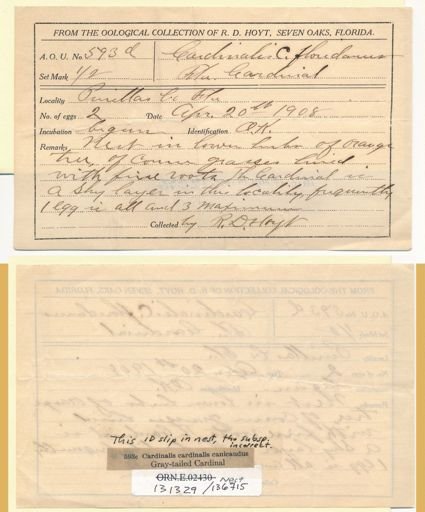 FROM THE OOLOGICAL COLLECTION OF R. D. HOYT, SEVEN OAKS, FLORIDA.
A. O. U. No. 593d Cardinalis C. floridanus
Set Mark 1/2 Fla. Cardinal
Locality Pinellas Co Fla
No. of eggs 2 Date Apr. 20th 1908
Incubation begun Identification O.K.
Remarks Nest in lower limbs of orange
tree, of coarse grasses lined
with fine roots. The Cardinal is
a shy layer in this locality, frequently
1 egg is all and 3 maximum
Collected by R. D. Hoyt
This ID slip in nest, tho subsp.
incorrect.
593c Cardinalis cardinalis canicaudus
Gray-tailed Cardinal
ORN.E.02430 Nest
131329 / 136715